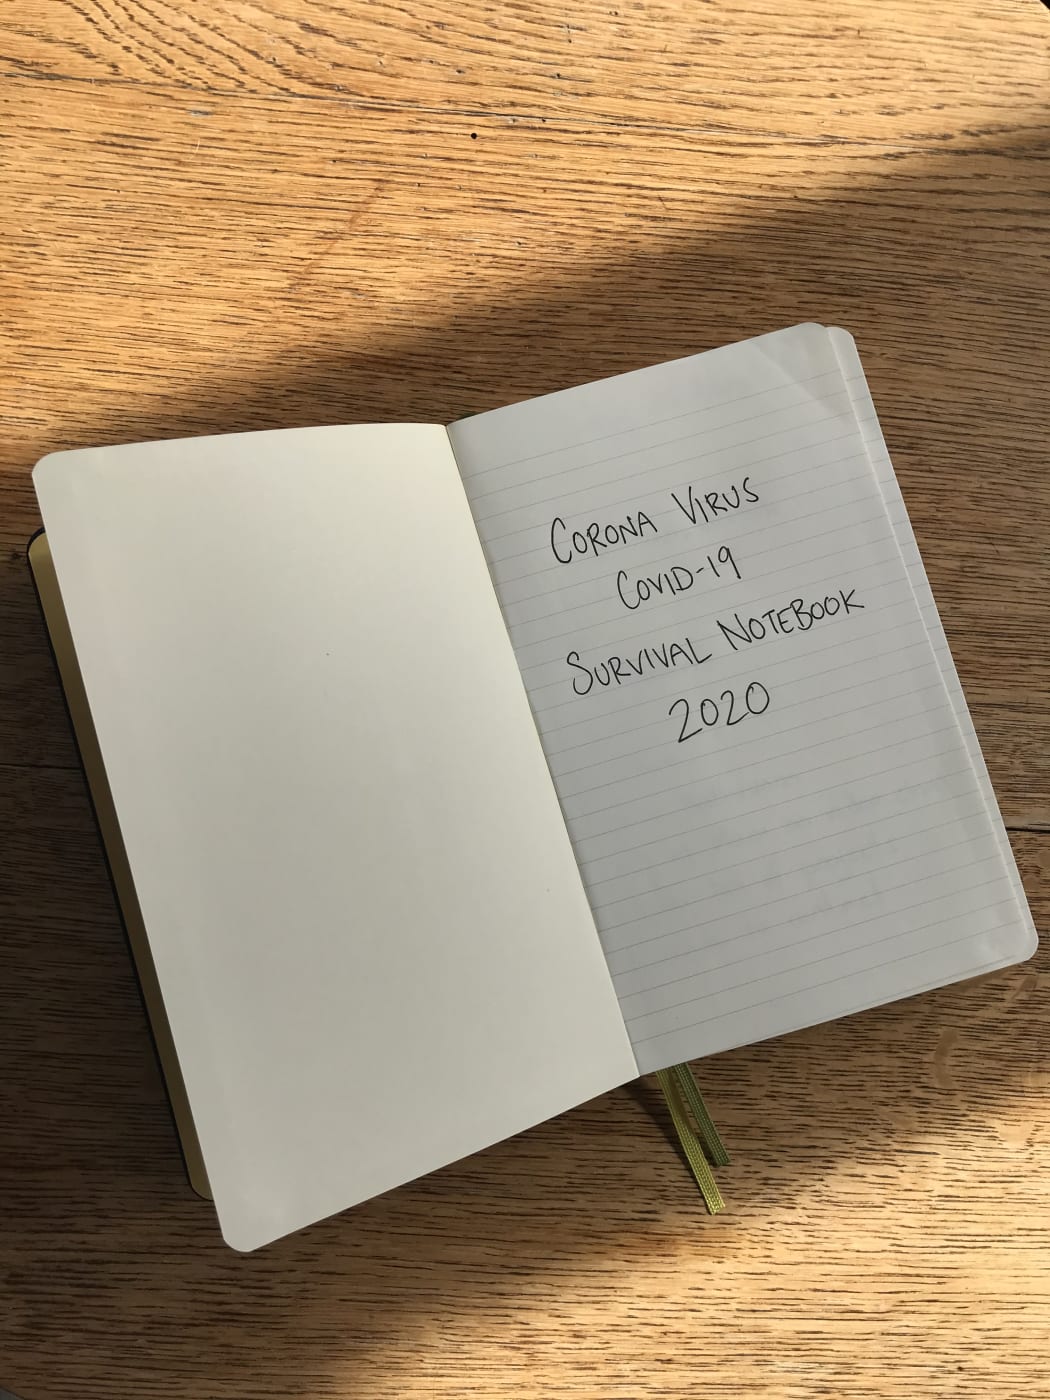 CORONA VIRUS
COVID-19
SURVIVAL NOTEBOOK
2020